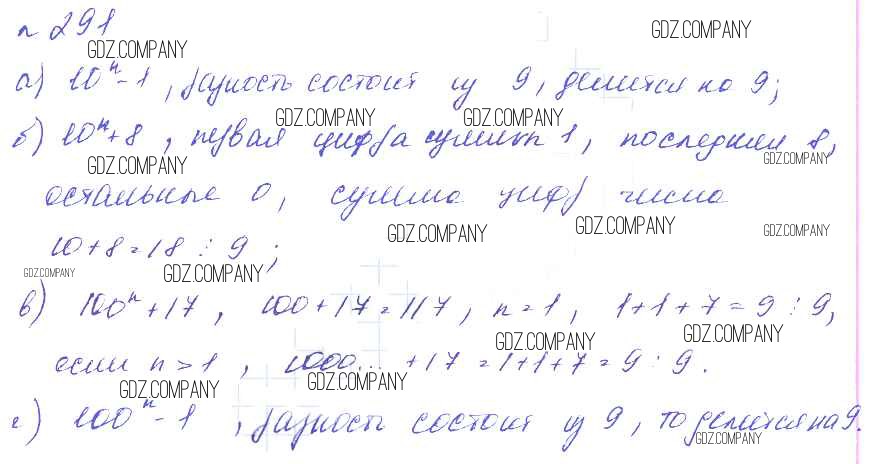 № 291
GDZ.COMPANY GDZ.COMPANY
а) 10ⁿ-1, разность состоит из 9, делится на 9;
GDZ.COMPANY GDZ.COMPANY
б) 10ⁿ+8, первая цифра суммы 1, последняя 8,
GDZ.COMPANY GDZ.COMPANY
остальные 0, сумма цифр числа
GDZ.COMPANY GDZ.COMPANY GDZ.COMPANY
10+8=18 ⋮ 9;
GDZ.COMPANY GDZ.COMPANY
в) 100ⁿ+17, 100+17=117, n=1, 1+1+7=9 ⋮ 9,
GDZ.COMPANY GDZ.COMPANY
если n>1, 1000...+17=1+1+7=9 ⋮ 9.
GDZ.COMPANY GDZ.COMPANY
г) 100ⁿ-1, разность состоит из 9, то делится на 9.
GDZ.COMPANY